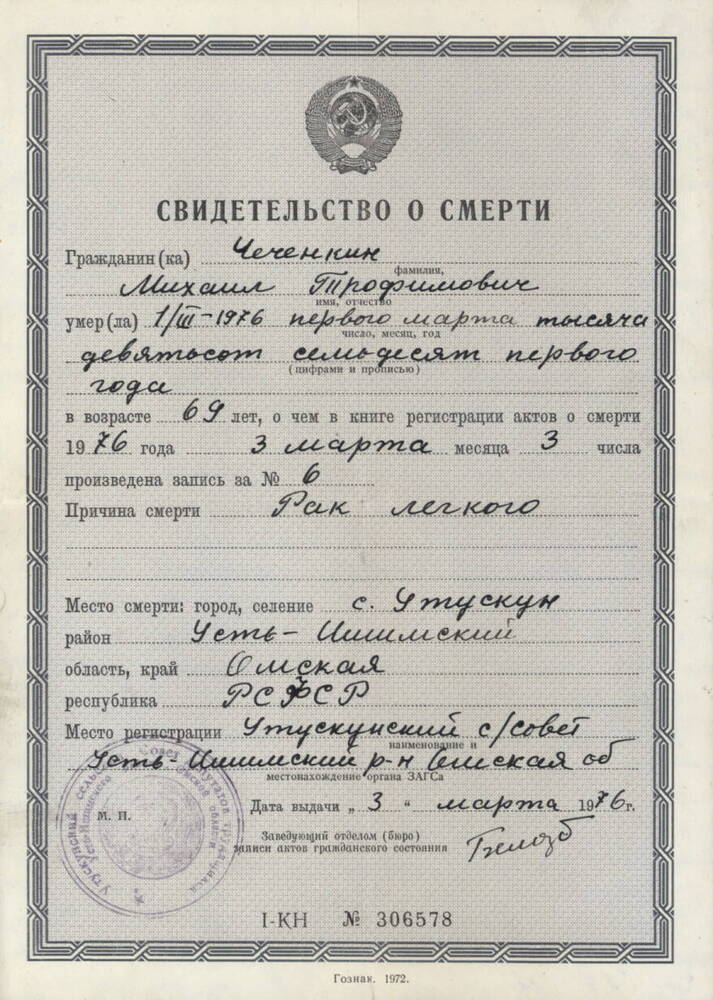 СВИДЕТЕЛЬСТВО О СМЕРТИ
Гражданин (ка) Чеченкин
фамилия,
Михаил Трофимович
имя, отчество
умер (ла) 1/III-1976 первого марта тысяча
число, месяц, год
девятьсот семьдесят первого
(цифрами и прописью)
года
в возрасте 69 лет, о чем в книге регистрации актов о смерти
1976 года 3 марта месяца 3 числа
произведена запись за № 6
Причина смерти Рак легкого
Место смерти: город, селение с. Утускун
район Усть-Ишимский
область, край Омская
республика РСФСР
Место регистрации Утускунский с/совет
наименование и
Усть-Ишимский р-н Омская об
местонахождение органа ЗАГСа
Дата выдачи „ 3 “ марта 1976 г.
М. П.
Заведующий отделом (бюро)
записи актов гражданского состояния
I-КН № 306578
Гознак. 1972.